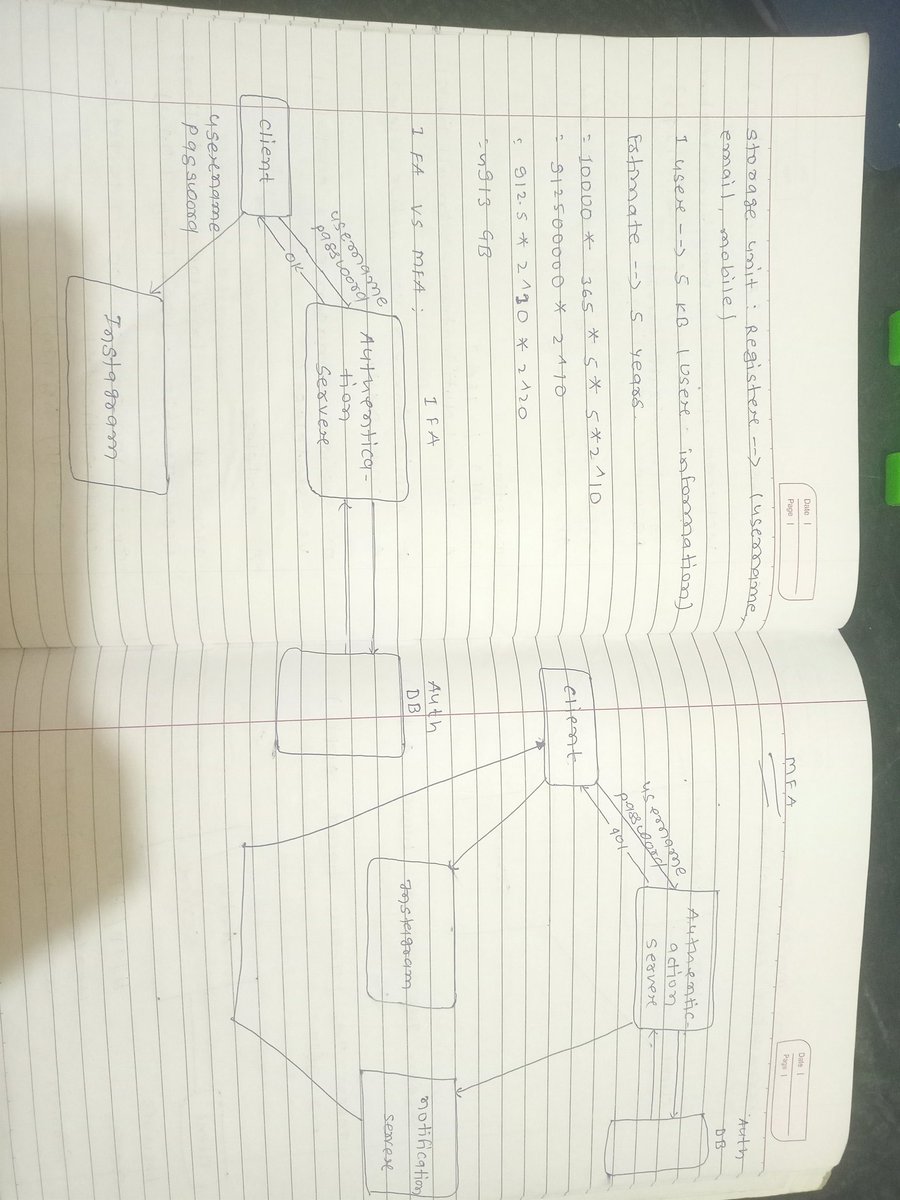 Date |
Page |
storage unit : Registere --> (username,
email, mobile)
1 usere --> 5 KB (usere information)
Estimate --> 5 years
= 10000 * 365 * 5 * 5 * 2^10
= 91250000 * 2^10
= 912.5 * 2^20
= GB
1 FA vs MFA :
1 FA
client
username
password
OK
Authentica-
tion
servere
username
password
Instagram
Auth
DB
Date |
Page |
MFA
client
username
password
401
Authentic-
ation
servere
Auth
DB
Instagram
notification
servere